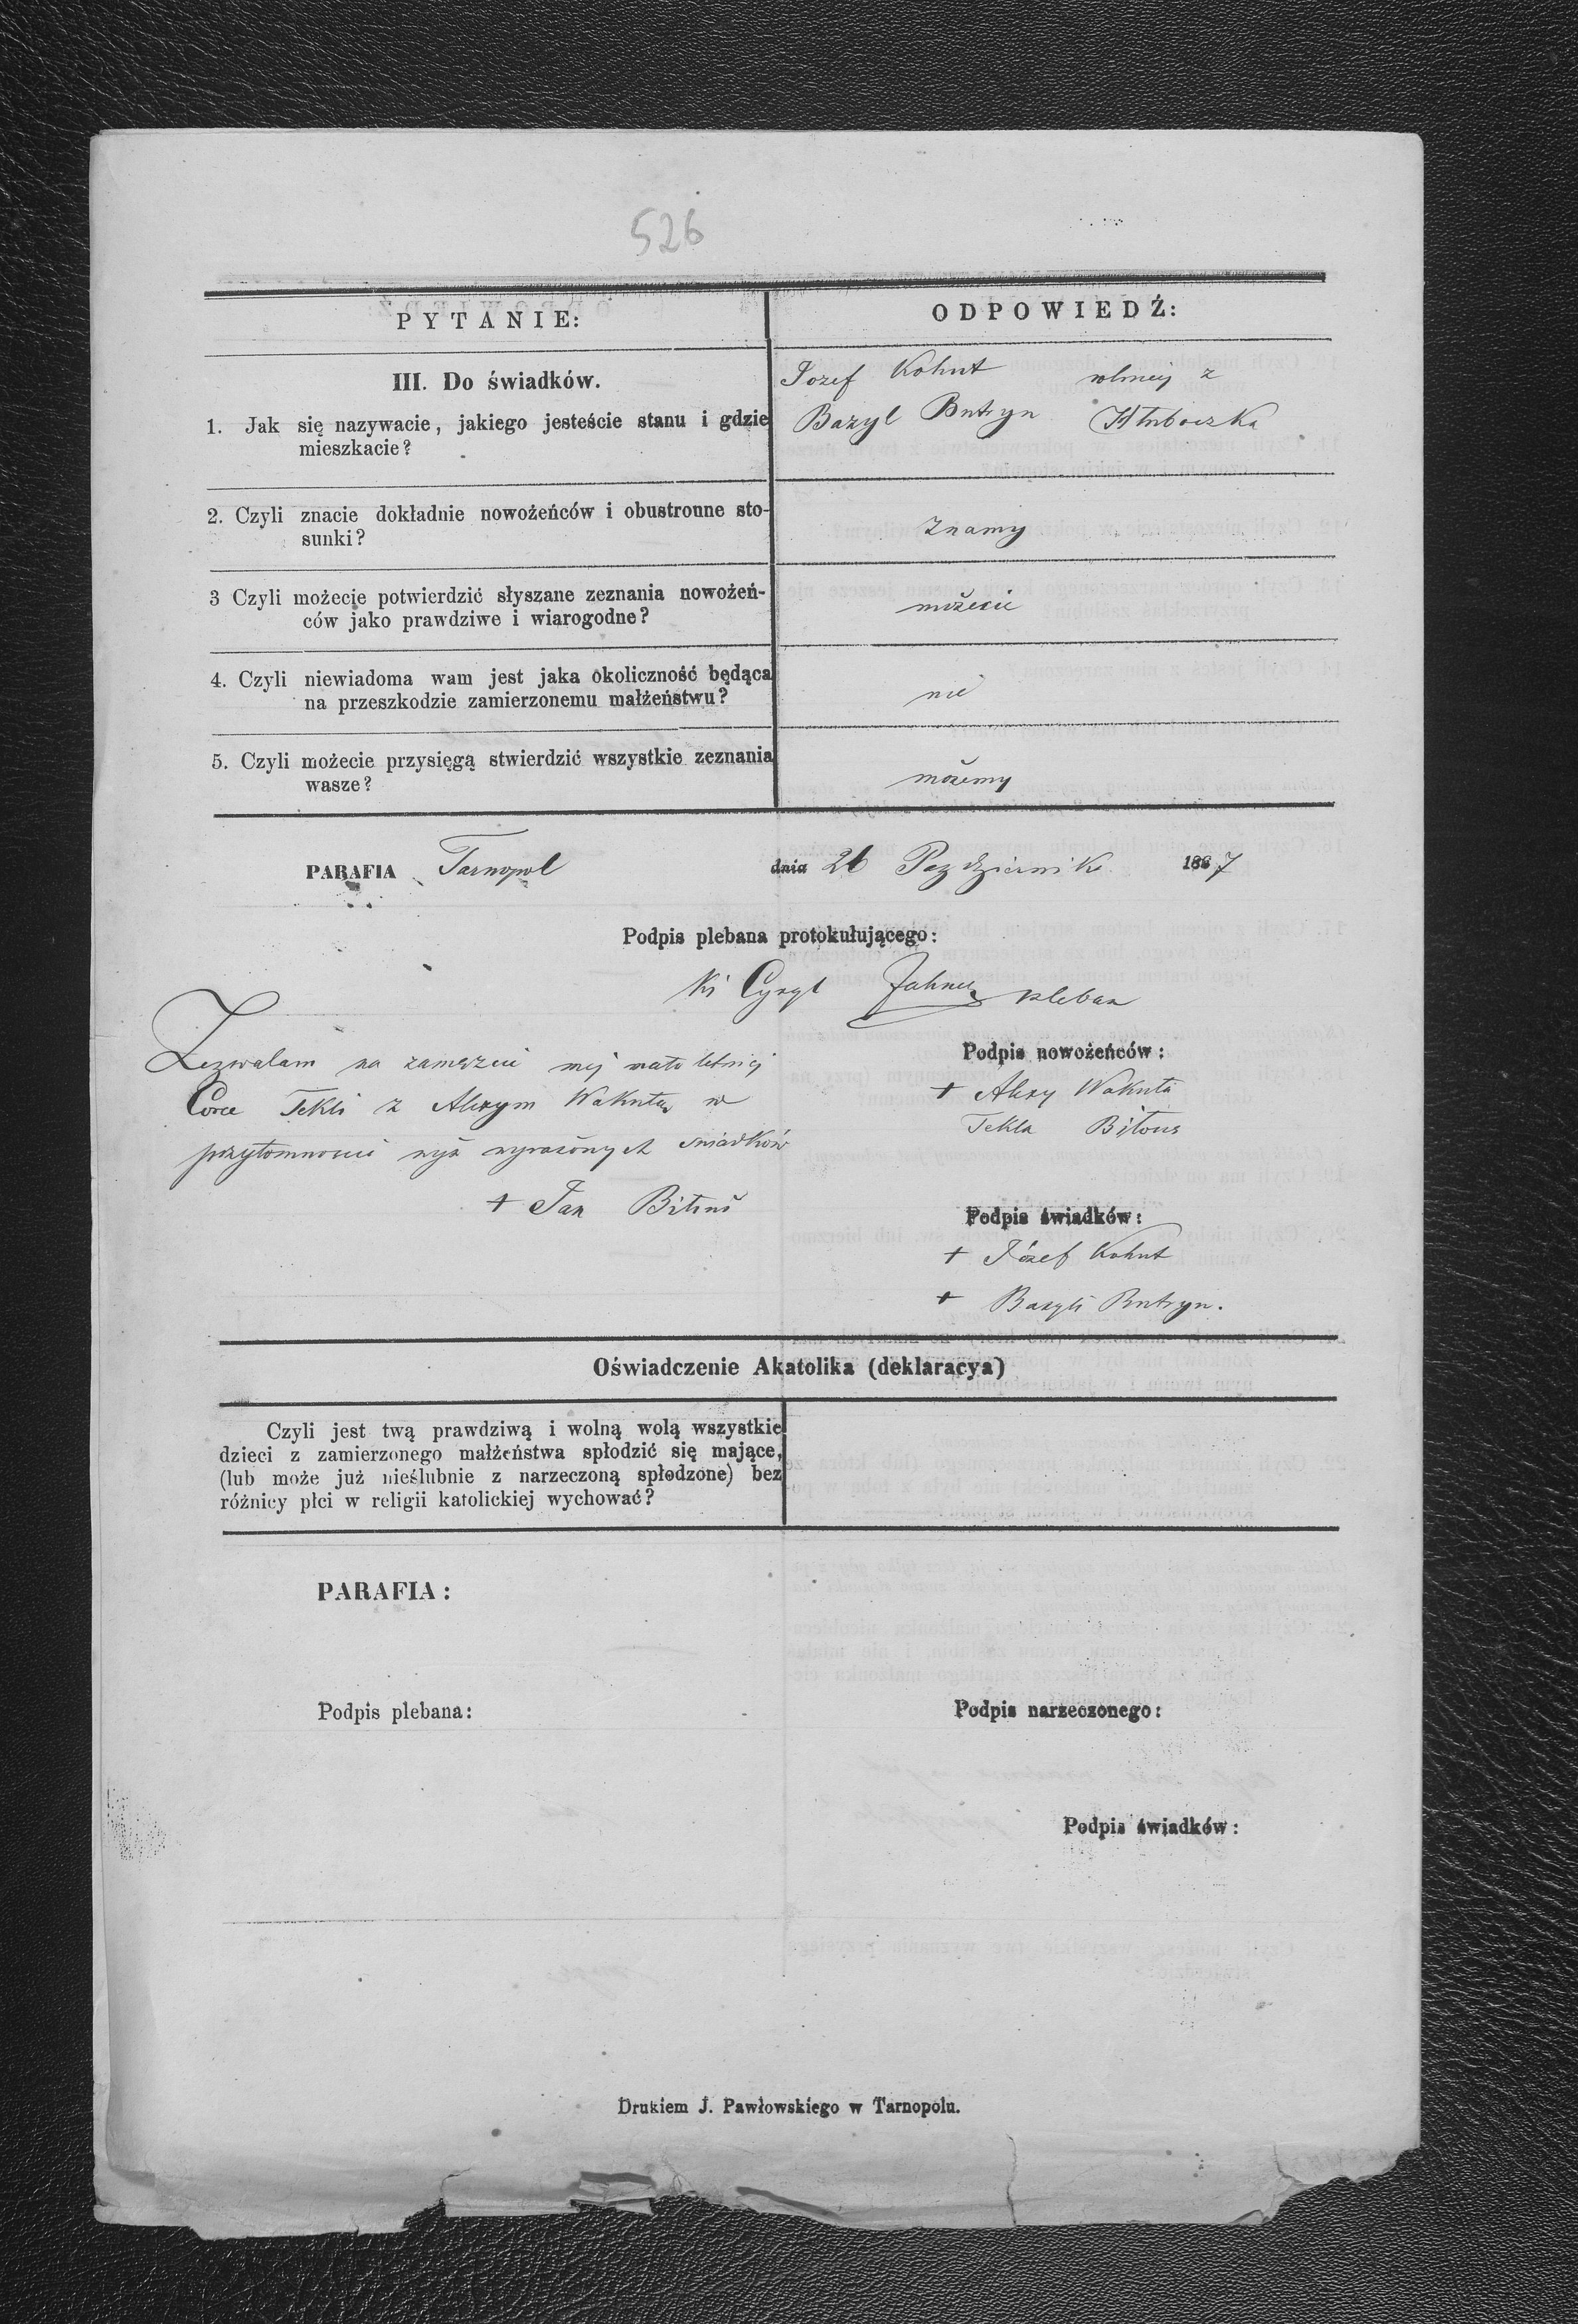 526
PYTANIE:
ODPOWIEDŹ:
III. Do świadków.
1. Jak się nazywacie, jakiego jesteście stanu i gdzie
mieszkacie?
Jozef Kohut rolnicy z
Bazyl Butryn Hłuboczka
2. Czyli znacie dokładnie nowożeńców i obustronne sto-
sunki?
znamy
3 Czyli możecie potwierdzić słyszane zeznania nowożeń-
ców jako prawdziwe i wiarogodne?
możecie
4. Czyli niewiadoma wam jest jaka okoliczność będąca
na przeszkodzie zamierzonemu małżeństwu?
nie
5. Czyli możecie przysięgą stwierdzić wszystkie zeznania
wasze?
możemy
PARAFIA Tarnopol dnia 26 Pazdziernik 1887
Podpis plebana protokułującego:
Ks Cyryl pleban
Zezwalam na zamęzcie mej mało letniej
Corce Tekli z Alexym Wakutą w
przytomnosci wyż wyrażonych swiadków
+ Jan Bitous
Podpis nowożeńców:
+ Alexy Wakuta
Tekla Bitous
Podpis świadków:
+ Józef Kohut
+ Bazyli Butryn.
Oświadczenie Akatolika (deklaracya)
Czyli jest twą prawdziwą i wolną wolą wszystkie
dzieci z zamierzonego małżeństwa spłodzić się mające,
(lub może już nieślubnie z narzeczoną spłodzone) bez
różnicy płci w religii katolickiej wychować?
PARAFIA:
Podpis plebana:
Podpis narzeczonego:
Podpis świadków:
Drukiem J. Pawłowskiego w Tarnopolu.